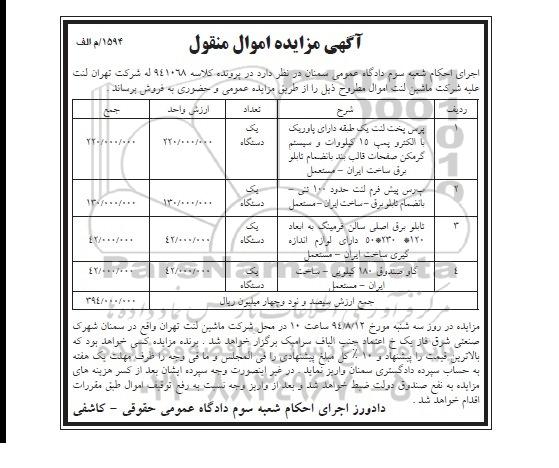 آگهی مزایده اموال منقول
۱۵۹۴/م الف
اجرای احکام شعبه سوم دادگاه عمومی سمنان در نظر دارد در پرونده کلاسه ۹۴۱۰۶۸ له شرکت تهران لنت
علیه شرکت ماشین لنت اموال مطروح ذیل را از طریق مزایده عمومی و حضوری به فروش برساند .
ردیف شرح تعداد ارزش واحد جمع
۱ پرس پخت لنت یک طبقه دارای پاوریک یک دستگاه ۲۲۰/۰۰۰/۰۰۰ ۲۲۰/۰۰۰/۰۰۰
با الکترو پمپ ۱۵ کیلووات و سیستم
گرمکن صفحات قالب بند بانضمام تابلو
برق ساخت ایران – مستعمل
۲ پرس پیش فرم لنت حدود ۱۰۰ تنی – یک دستگاه ۱۳۰/۰۰۰/۰۰۰ ۱۳۰/۰۰۰/۰۰۰
بانضمام تابلو برق – ساخت ایران – مستعمل
۳ تابلو برق اصلی سالن فرمینگ به ابعاد یک دستگاه ۴۲/۰۰۰/۰۰۰ ۴۲/۰۰۰/۰۰۰
۱۲۰* ۲۳۰* ۵۰ دارای لوازم اندازه
گیری ساخت ایران – مستعمل
۴ گاو صندوق ۱۸۰ کیلویی – ساخت یک دستگاه ۴۲/۰۰۰/۰۰۰ ۴۲/۰۰۰/۰۰۰
ایران – مستعمل
جمع ارزش سیصد و نود وچهار میلیون ریال ۳۹۴/۰۰۰/۰۰۰
مزایده در روز سه شنبه مورخ ۹۴/۸/۱۲ ساعت ۱۰ در محل شرکت ماشین لنت تهران واقع در سمنان شهرک
صنعتی شرق فاز یک خ اعتماد جنب الیاف سرامیک برگزار خواهد شد . برنده مزایده کسی خواهد بود که
بالاترین قیمت را پیشنهاد و ۱۰ ٪ کل مبلغ پیشنهادی را فی المجلس و ما قی وجه را ظرف مهلت یک هفته
به حساب سپرده دادگستری سمنان واریز نماید . در غیر اینصورت وجه سپرده ایشان بعد از کسر هزینه های
مزایده به نفع صندوق دولت ضبط خواهد شد و بعد از واریز وجه نسبت به رفع توقیف اموال طبق مقررات
اقدام خواهد شد .
دادورز اجرای احکام شعبه سوم دادگاه عمومی حقوقی – کاشفی
ParsNamadData